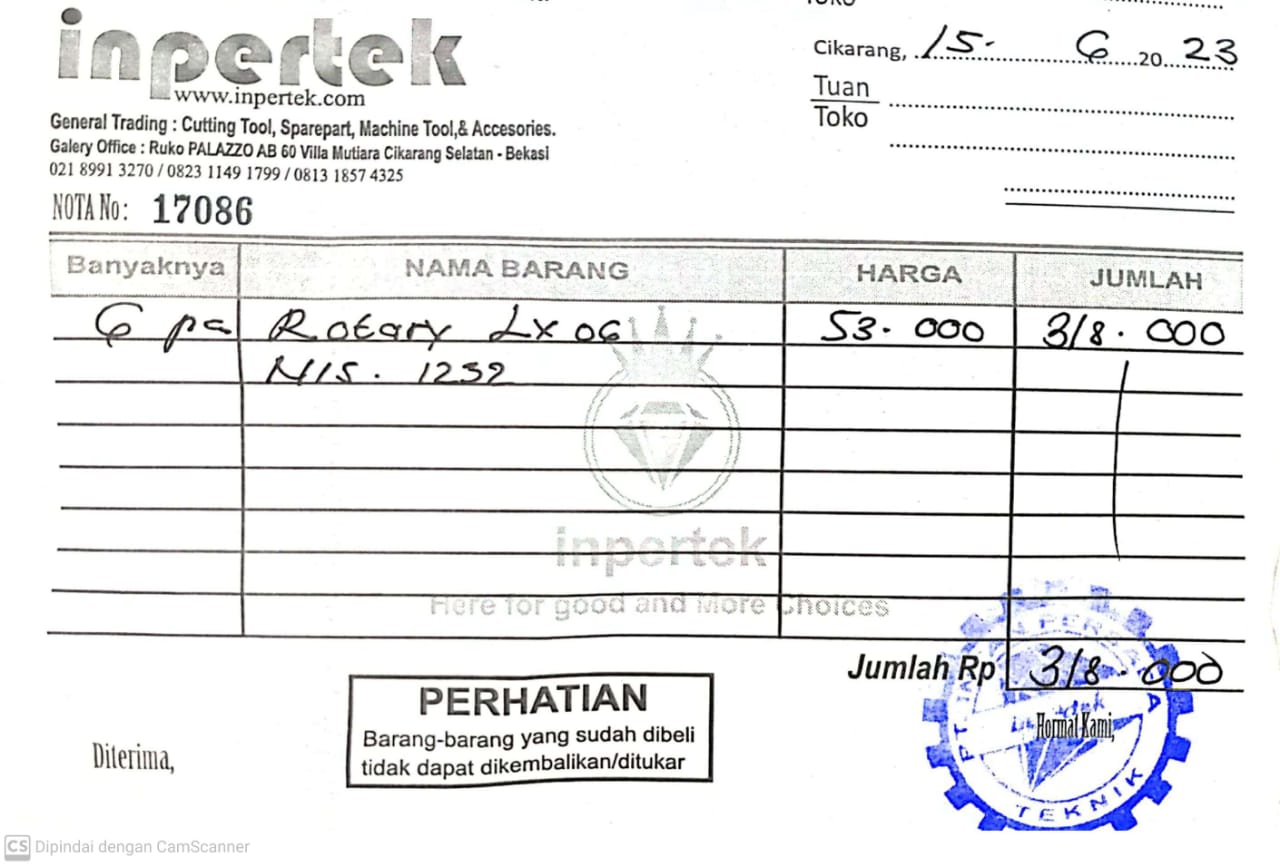 inpertek
www.inpertek.com
General Trading : Cutting Tool, Sparepart, Machine Tool,& Accesories.
Galery Office : Ruko PALAZZO AB 60 Villa Mutiara Cikarang Selatan - Bekasi
021 8991 3270 / 0823 1149 1799 / 0813 1857 4325
NOTA No: 17086
Cikarang, 15. 6 2023
Tuan
Toko
Banyaknya NAMA BARANG HARGA JUMLAH
6 pc Rotary Lx 06 53.000 318.000
N15. 1232
inpertek
Here for good and More Choices
Jumlah Rp 318.000
PERHATIAN
Barang-barang yang sudah dibeli
tidak dapat dikembalikan/ditukar
Diterima,
Hormat Kami,
PT.
TEKNIK
CS Dipindai dengan CamScanner